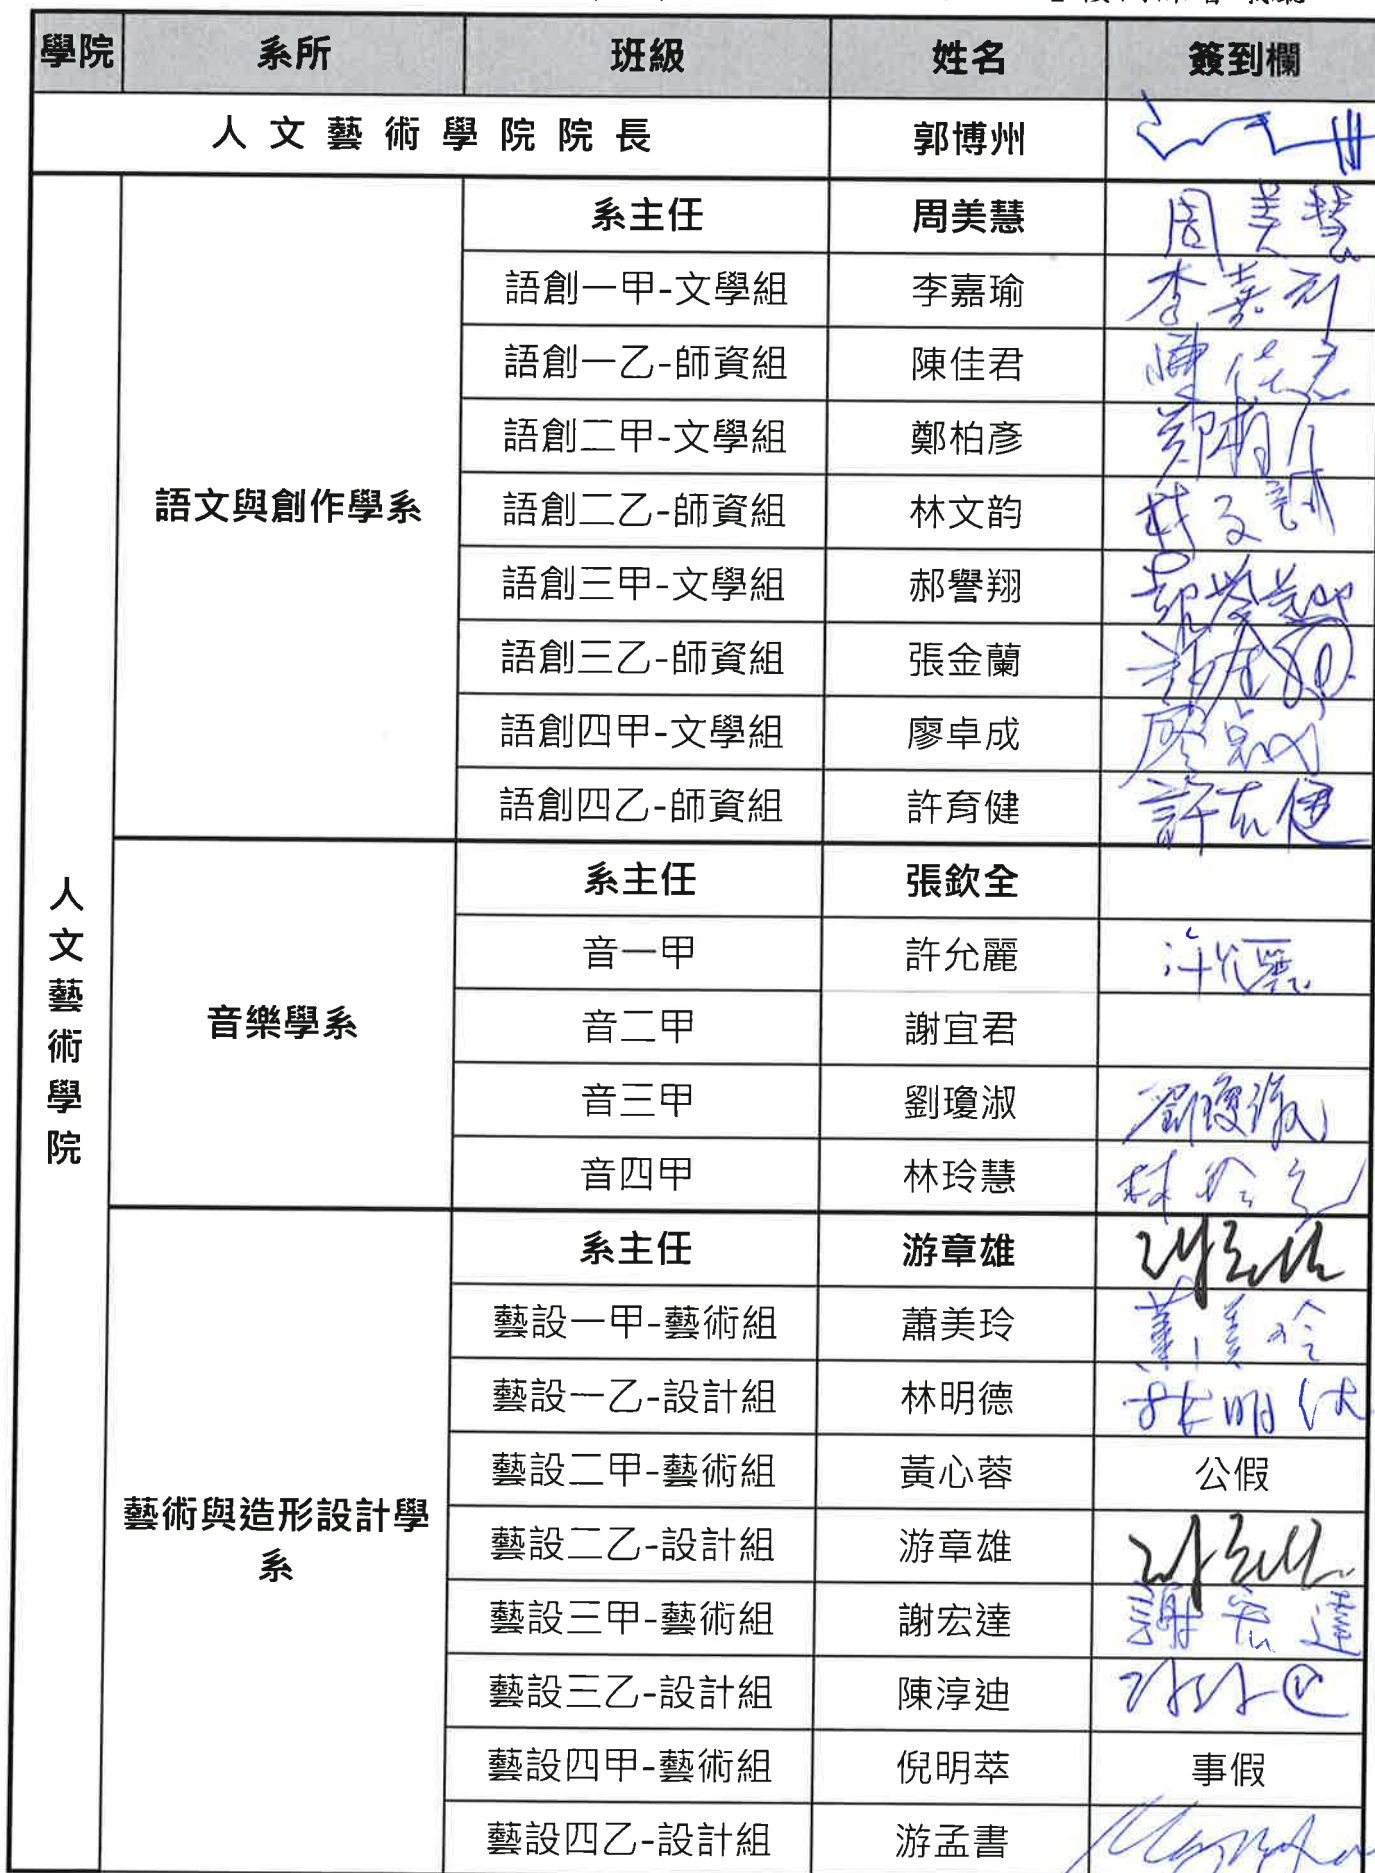 學院 系所 班級 姓名 簽到欄
人文藝術學院院長 郭博州
人文藝術學院
語文與創作學系
系主任 周美慧 周美慧
語創一甲-文學組 李嘉瑜 李嘉
語創一乙-師資組 陳佳君 陳佳君
語創二甲-文學組 鄭柏彥 鄭柏
語創二乙-師資組 林文韵 林文韵
語創三甲-文學組 郝譽翔 郝譽翔
語創三乙-師資組 張金蘭 張金蘭
語創四甲-文學組 廖卓成 廖卓成
語創四乙-師資組 許育健 許育健
音樂學系
系主任 張欽全
音一甲 許允麗 許允麗
音二甲 謝宜君
音三甲 劉瓊淑 劉瓊淑
音四甲 林玲慧 林玲
藝術與造形設計學
系
系主任 游章雄
藝設一甲-藝術組 蕭美玲 蕭美玲
藝設一乙-設計組 林明德 林明德
藝設二甲-藝術組 黃心蓉 公假
藝設二乙-設計組 游章雄
藝設三甲-藝術組 謝宏達 謝宏達
藝設三乙-設計組 陳淳迪
藝設四甲-藝術組 倪明萃 事假
藝設四乙-設計組 游孟書